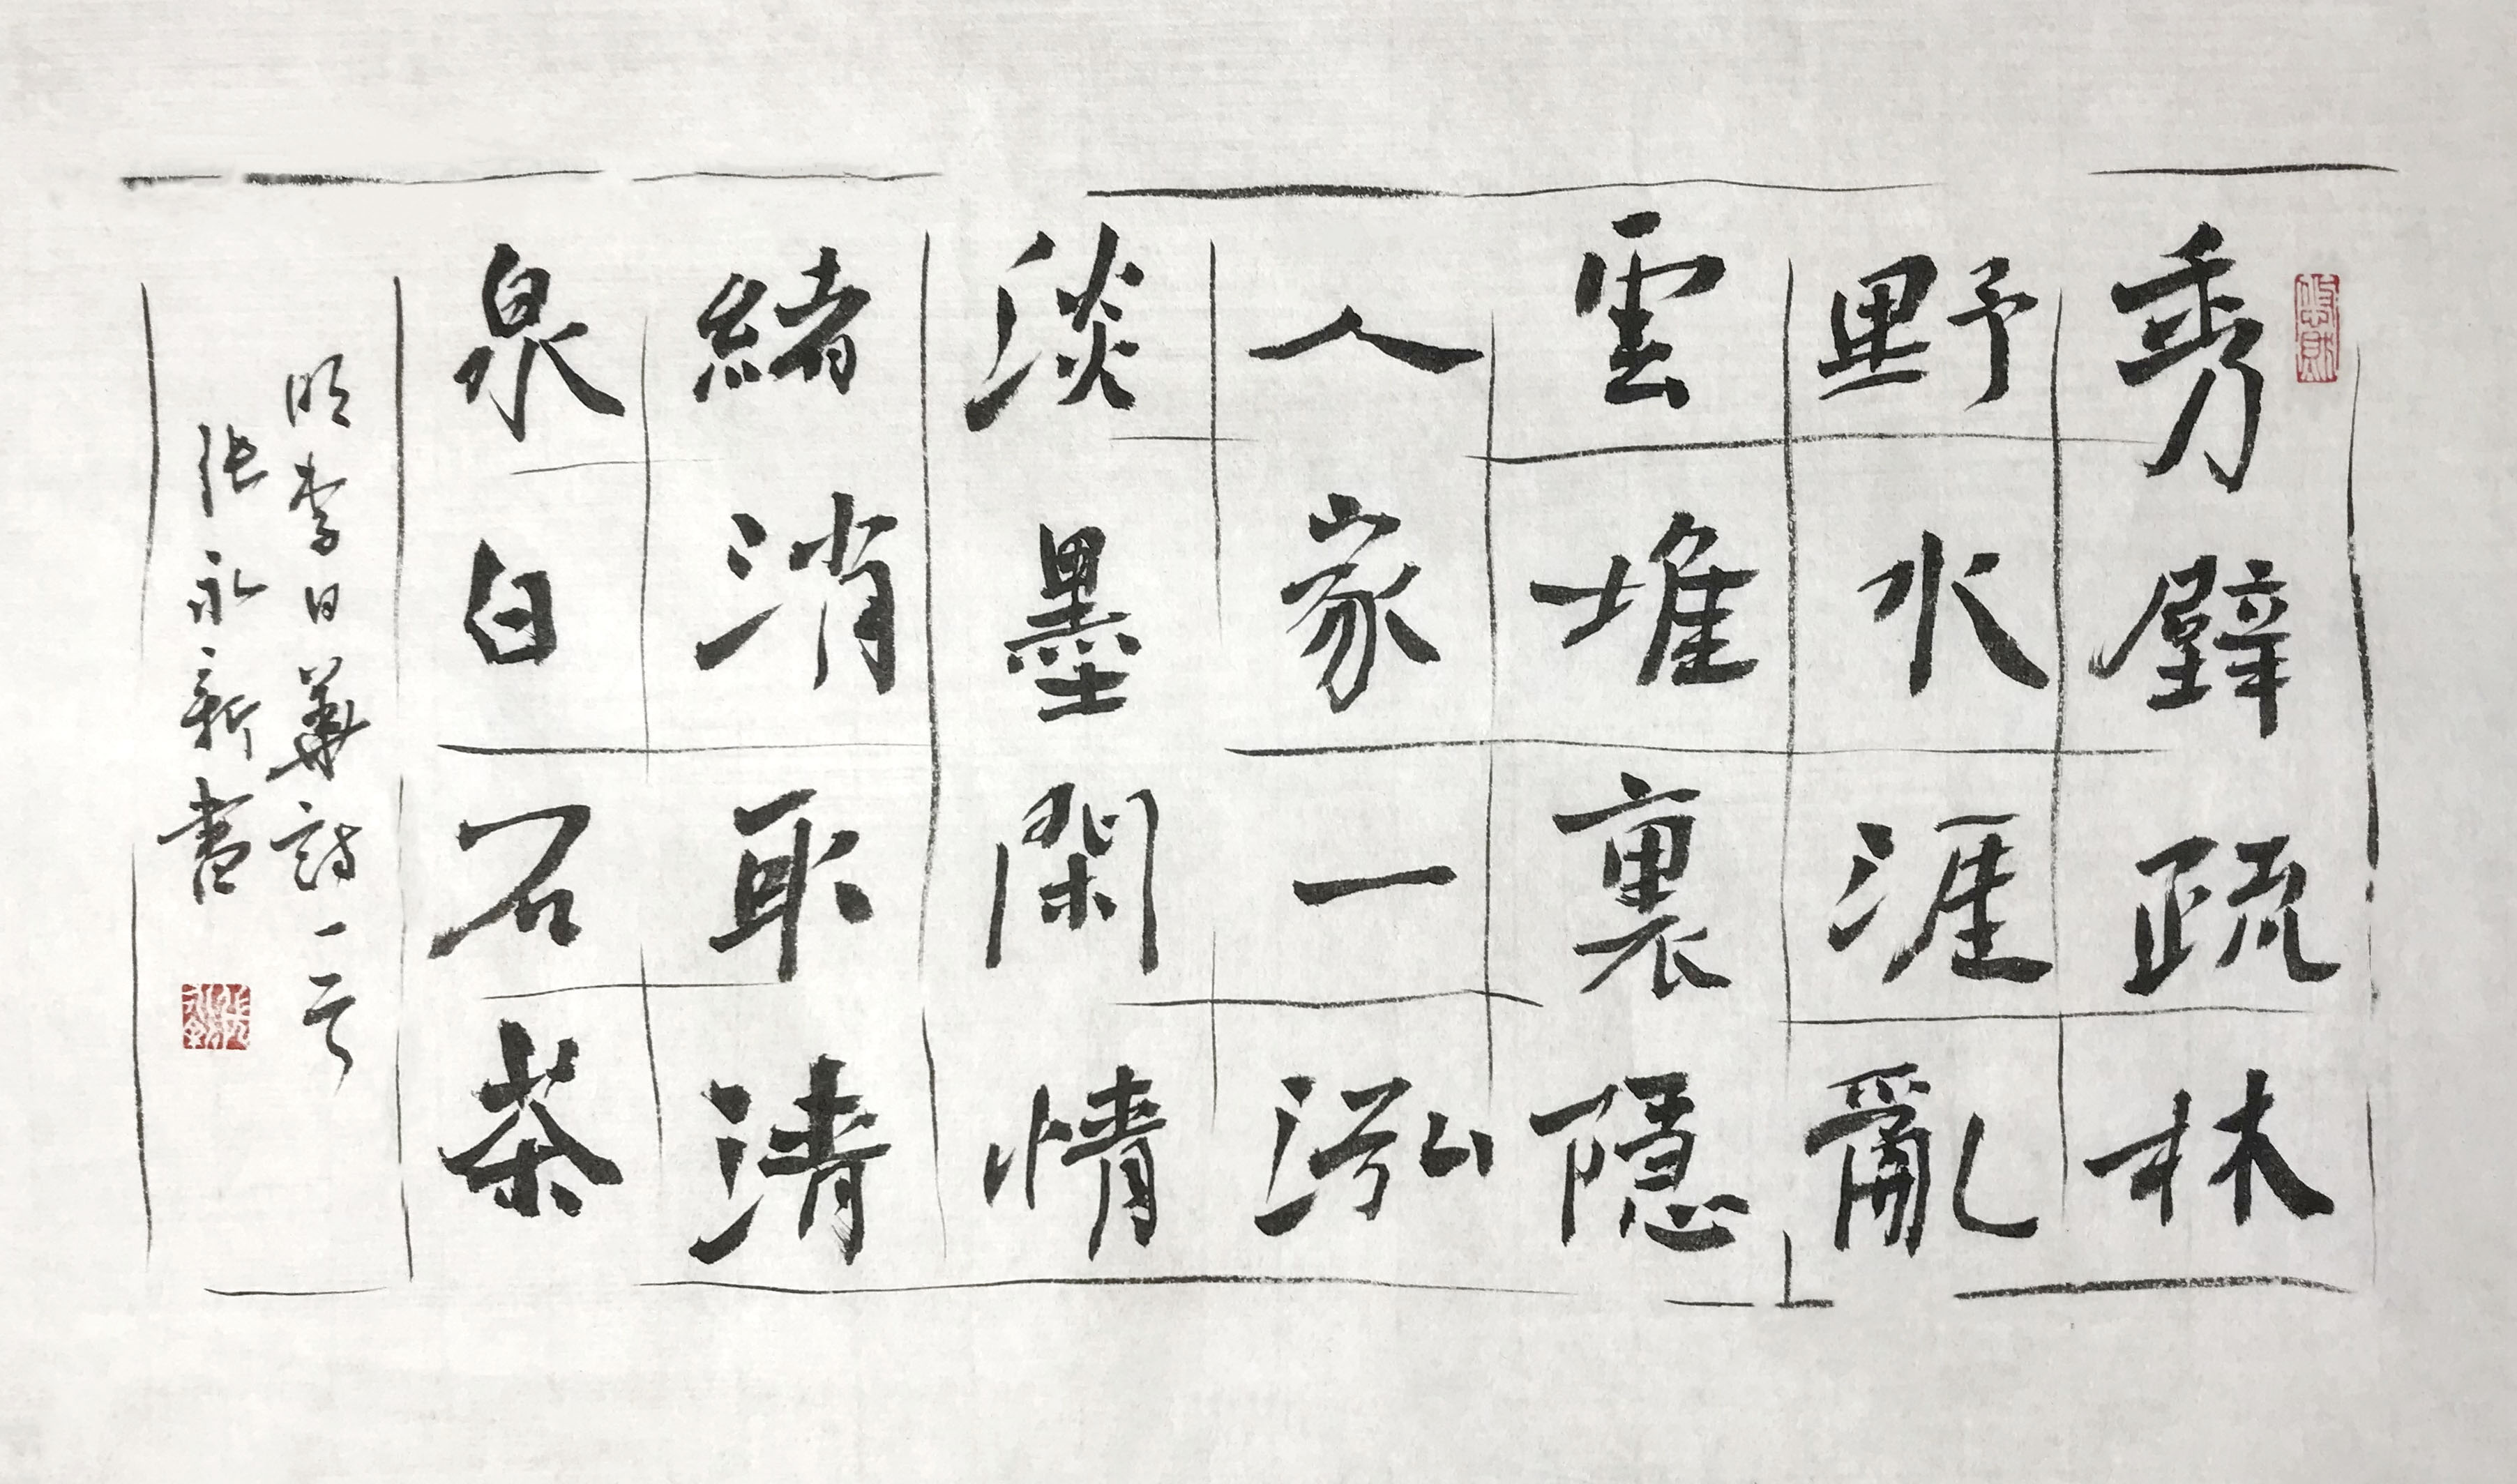 秀壁疏林
野水涯亂
雲堆裏隱
人家一泓
淡墨閑情
緒消取清
泉白石茶
明李日華詩一首
張永新書